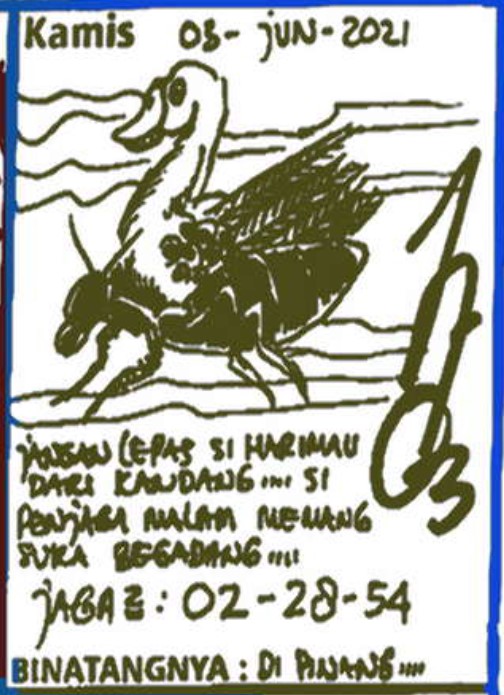 Kamis 03-JUN-2021
JANGAN LEPAS SI HARIMAU
DARI KANDANG.... SI
PENJAGA MALAM MEMANG
SUKA BEGADANG....
JAGA2 : 02-28-54
BINATANGNYA : DI PINANG....